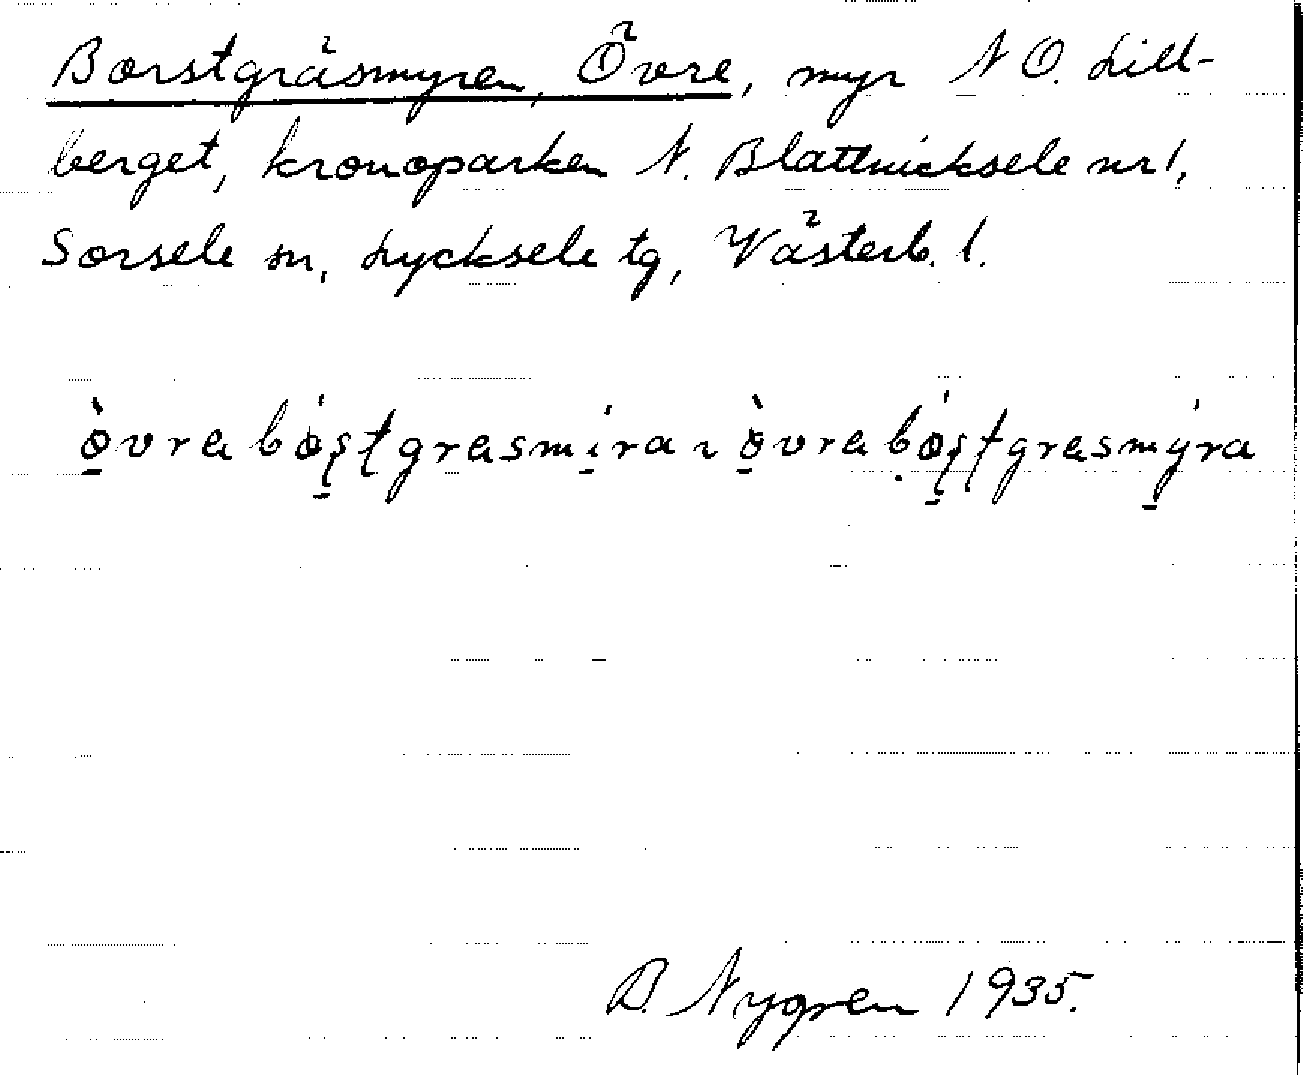 Borstgräsmyren, Övre, myr N O. Lill-
berget, kronoparken N. Blattnicksele nr 1,
Sorsele sn, Lycksele tg, Västerb. l.
ò̱vra bó̱ʂʈgrasmí̱ra ı ò̱vra bó̱ʂʈgrasmý̱ra
B. Nygren 1935.